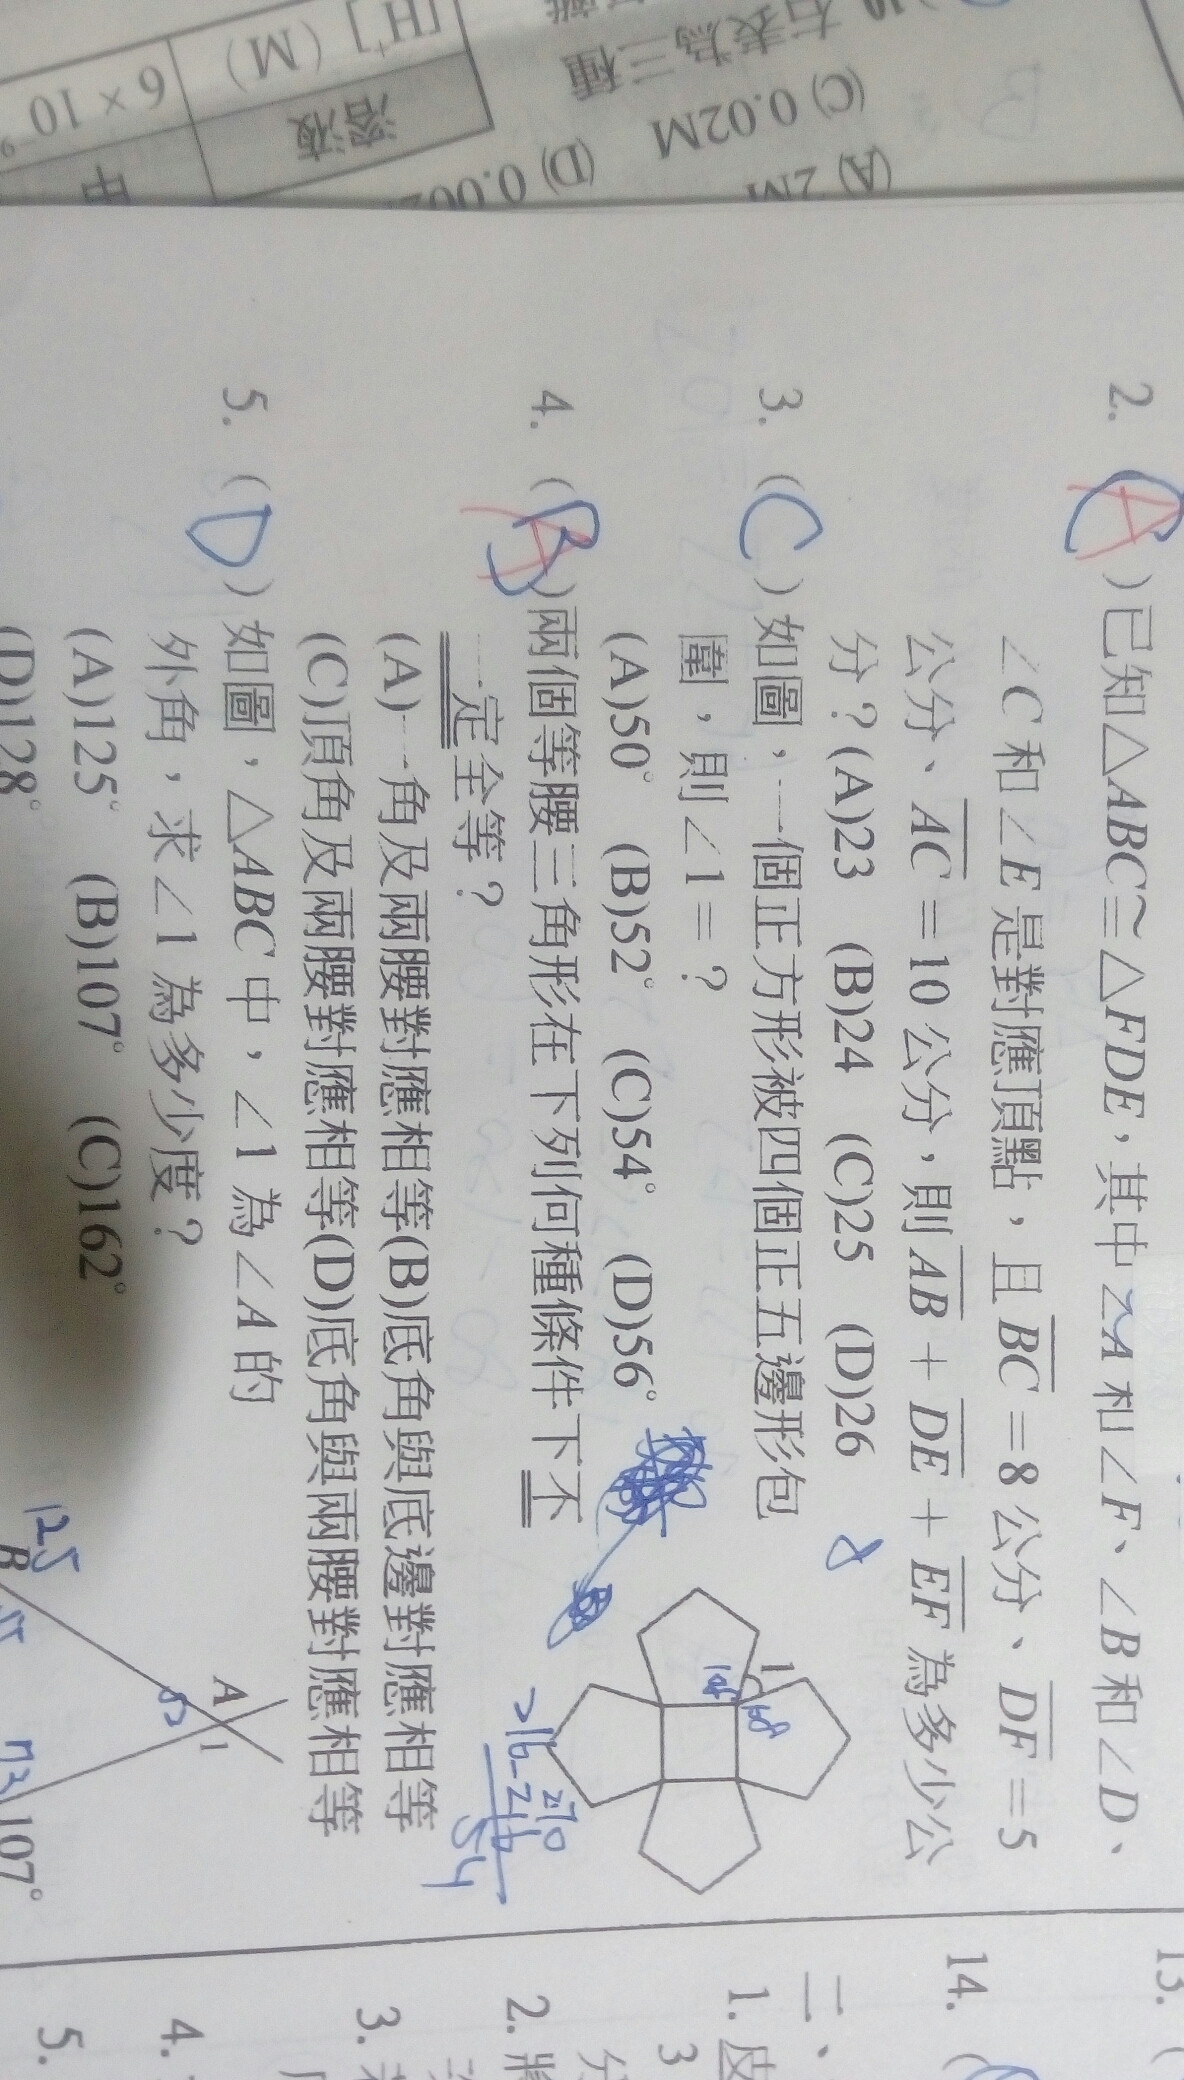 2. (A)已知△ABC≅△FDE，其中∠A和∠F、∠B和∠D、
∠C和∠E是對應頂點，且BC=8公分、DF=5
公分、AC=10公分，則AB+DE+EF為多少公
分？(A)23 (B)24 (C)25 (D)26
8
3. (C)如圖，一個正方形被四個正五邊形包
圍，則∠1=？
(A)50° (B)52° (C)54° (D)56°
1
108
108
270
-216
54
4. (A)兩個等腰三角形在下列何種條件下不
一定全等？
(A)一角及兩腰對應相等(B)底角與底邊對應相等
(C)頂角及兩腰對應相等(D)底角與兩腰對應相等
5. (D)如圖，△ABC中，∠1為∠A的
外角，求∠1為多少度？
(A)125° (B)107° (C)162°
(D)128°
A
1
B
125
73
107°
13. (
14. (
二、
1. 皮
3
分
2.
3.
4.
5.
(A) 2M
(C) 0.02M
(D) 0.00
右表為三種
溶液
甲
[H⁺] (M)
6 × 10